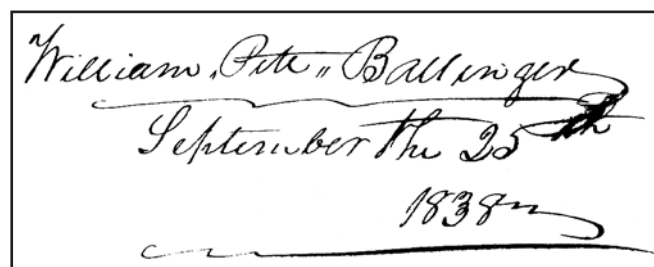 William „Pitt" Ballinger
September the 25th
1838